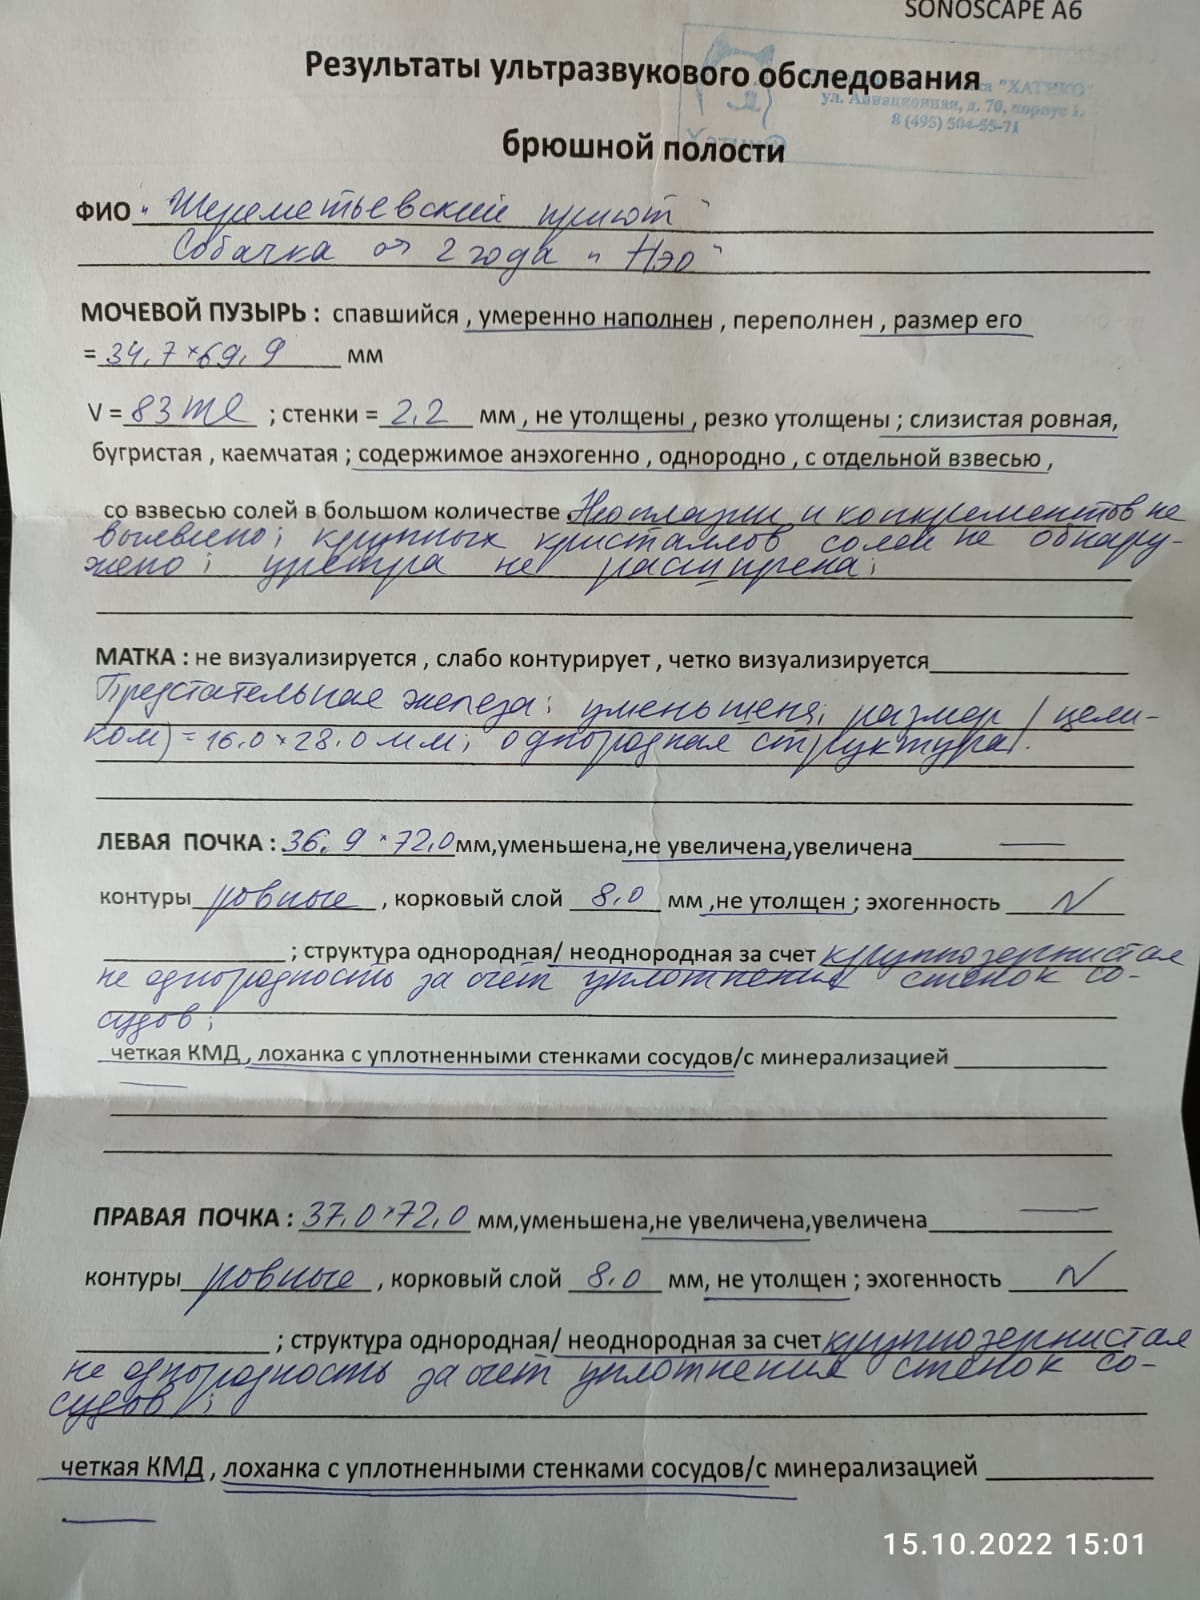 SONOSCAPE A6
Результаты ультразвукового обследования
"ХАТИКО"
ул. Авиационная, д. 70, корпус 1.
8 (495) 504-55-71
брюшной полости
ФИО "Шереметьевский приют"
Собачка ♂ 2 года "Нэо"
МОЧЕВОЙ ПУЗЫРЬ : спавшийся , умеренно наполнен , переполнен , размер его
= 34,7 × 69,9 мм
V = 83 ml ; стенки = 2,2 мм , не утолщены , резко утолщены ; слизистая ровная,
бугристая , каемчатая ; содержимое анэхогенно , однородно , с отдельной взвесью ,
со взвесью солей в большом количестве Неоплазии и конкрементов не
выявлено; крупных кристаллов солей не обнару-
жено; уретра не расширена;
МАТКА : не визуализируется , слабо контурирует , четко визуализируется
Предстательная железа: уменьшена; размер (цели-
ком) = 16.0 × 28.0 мм; однородная структура.
ЛЕВАЯ ПОЧКА : 36,9 × 72,0 мм,уменьшена,не увеличена,увеличена —
контуры ровные , корковый слой 8,0 мм ,не утолщен ; эхогенность N
; структура однородная/ неоднородная за счет крупнозернистая
неоднородность за счет уплотнения стенок со-
судов;
четкая КМД , лоханка с уплотненными стенками сосудов/с минерализацией
—
ПРАВАЯ ПОЧКА : 37,0 × 72,0 мм,уменьшена,не увеличена,увеличена —
контуры ровные , корковый слой 8,0 мм, не утолщен ; эхогенность N
; структура однородная/ неоднородная за счет крупнозернистая
неоднородность за счет уплотнения стенок со-
судов;
четкая КМД , лоханка с уплотненными стенками сосудов/с минерализацией
—
15.10.2022 15:01